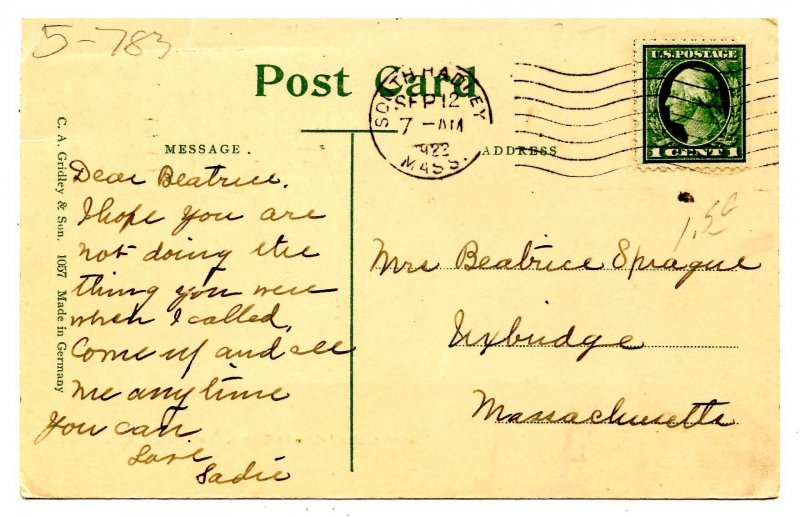 5-783
Post Card
SOUTH HADLEY
SEP 12
7-AM
1922
MASS.
U.S. POSTAGE
1 CENT 1
C. A. Gridley & Son. 1057 Made in Germany
MESSAGE.
ADDRESS
Dear Beatrice,
I hope you are
not doing the
thing you were
when I called,
Come up and see
me anytime
you can
Love
Sadie
1.50
Mrs Beatrice Sprague
Uxbridge
Massachusetts